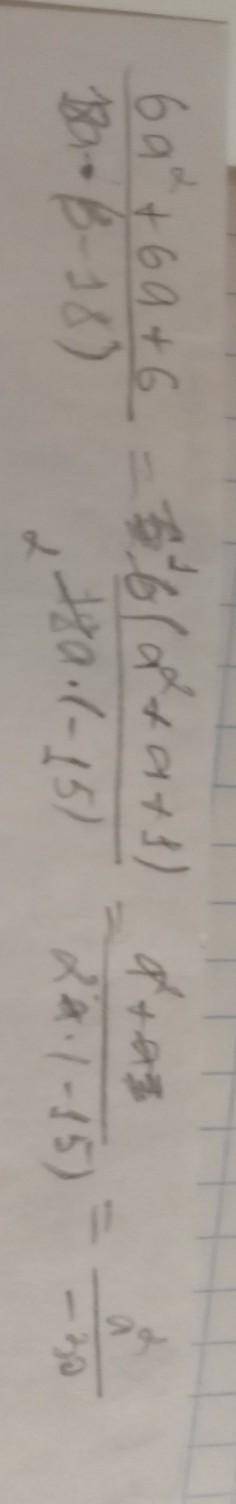 6a² + 6a + 6 / a · (-18) = 6(a² + a + 1) / 12a · (-15) = a² + a / 2a · (-15) = a² / -30